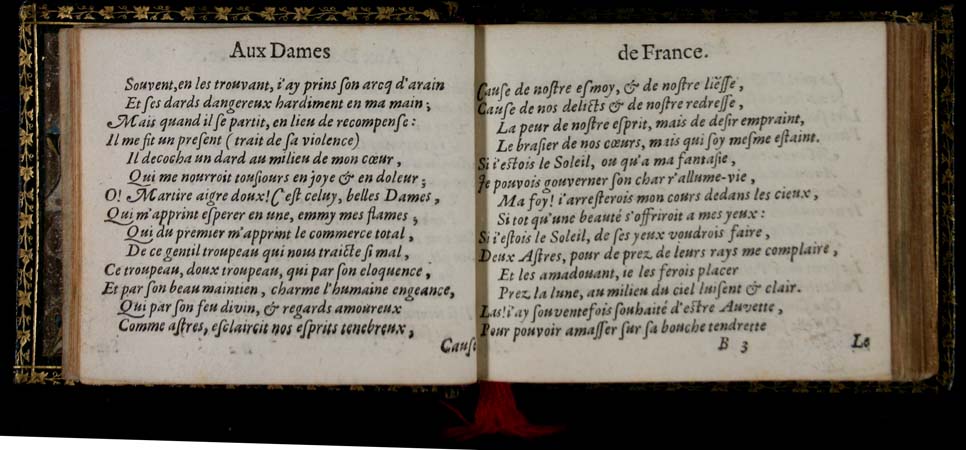 Aux Dames
Souvent, en les trouvant, i'ay prins ſon arcq d'arain
Et ſes dards dangereux hardiment en ma main;
Mais quand il ſe partit, en lieu de recompenſe:
Il me fit un preſent (trait de ſa violence)
Il decocha un dard au milieu de mon cœur,
Qui me nourroit touſiours en joye & en doleur;
O! Martire aigre doux! C'eſt celuy, belles Dames,
Qui m'apprint eſperer en une, emmy mes flames;
Qui du premier m'apprint le commerce total,
De ce gentil troupeau qui nous traicte ſi mal,
Ce troupeau, doux troupeau, qui par ſon eloquence,
Et par ſon beau maintien, charme l'humaine engeance,
Qui par ſon feu divin, & regards amoureux
Comme aſtres, eſclaircit nos eſprits tenebreux,
Cauſe
de France.
Cauſe de noſtre eſmoy, & de noſtre lieſſe,
Cauſe de nos delicts & de noſtre redreſſe,
La peur de noſtre eſprit, mais de deſir empraint,
Le braſier de nos cœurs, mais qui ſoy meſme eſtaint.
Si i'eſtois le Soleil, ou qu'a ma fantaſie,
Je pouvois gouverner ſon char r'allume-vie,
Ma foy! i'arreſterois mon cours dedans les cieux,
Si tot qu'une beauté s'offriroit a mes yeux:
Si i'eſtois le Soleil, de ſes yeux voudrois faire,
Deux Aſtres, pour de prez de leurs rays me complaire,
Et les amadouant, ie les ferois placer
Prez la lune, au milieu du ciel luiſent & clair.
Las! i'ay ſouventefois ſouhaité d'eſtre Auvette,
Pour pouvoir amaſſer ſur ſa bouche tendrette
B 3 Le